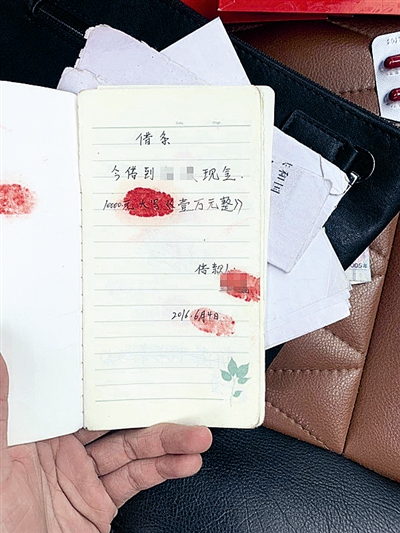 借条
今借到 现金.
10000元(大写 壹万元整))
借款人:
2016.6月4日